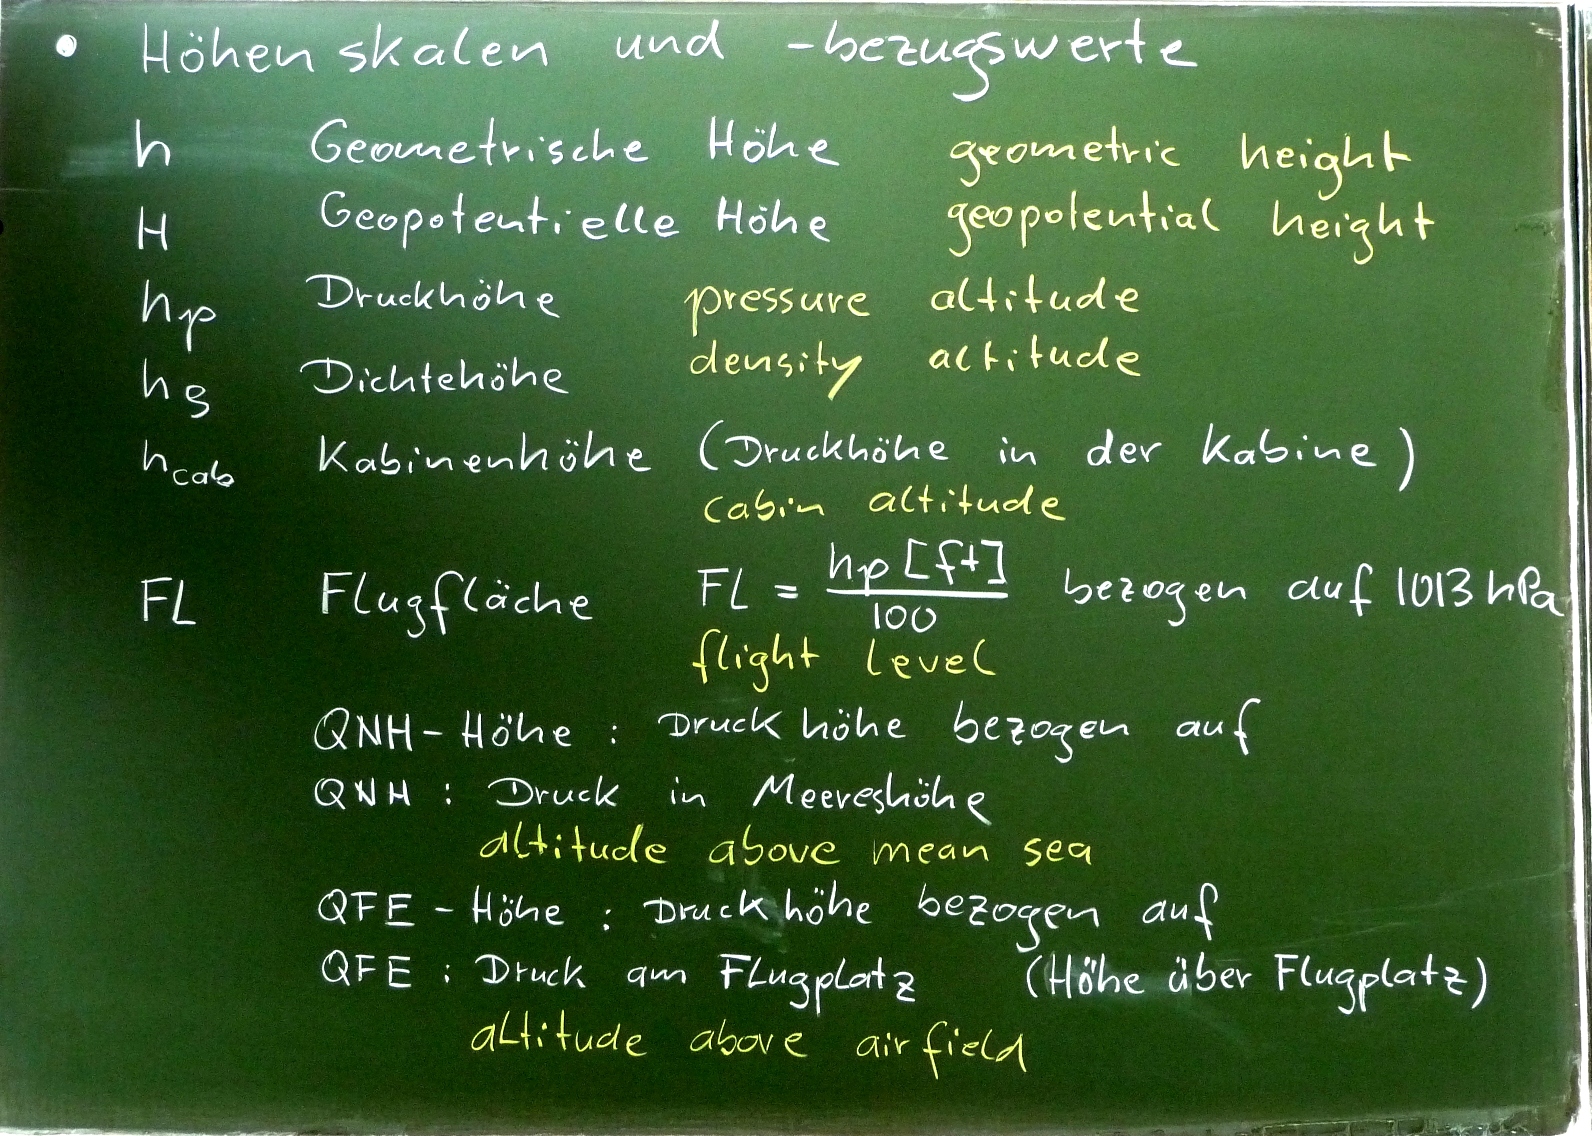 • Höhenskalen und -bezugswerte
h Geometrische Höhe geometric height
H Geopotentielle Höhe geopotential height
hp Druckhöhe pressure altitude
hϱ Dichtehöhe density altitude
hcab Kabinenhöhe (Druckhöhe in der Kabine)
cabin altitude
FL Flugfläche FL = hp [ft] / 100 bezogen auf 1013 hPa
flight level
QNH-Höhe : Druckhöhe bezogen auf
QNH : Druck in Meereshöhe
altitude above mean sea
QFE-Höhe : Druckhöhe bezogen auf
QFE : Druck am Flugplatz (Höhe über Flugplatz)
altitude above airfield